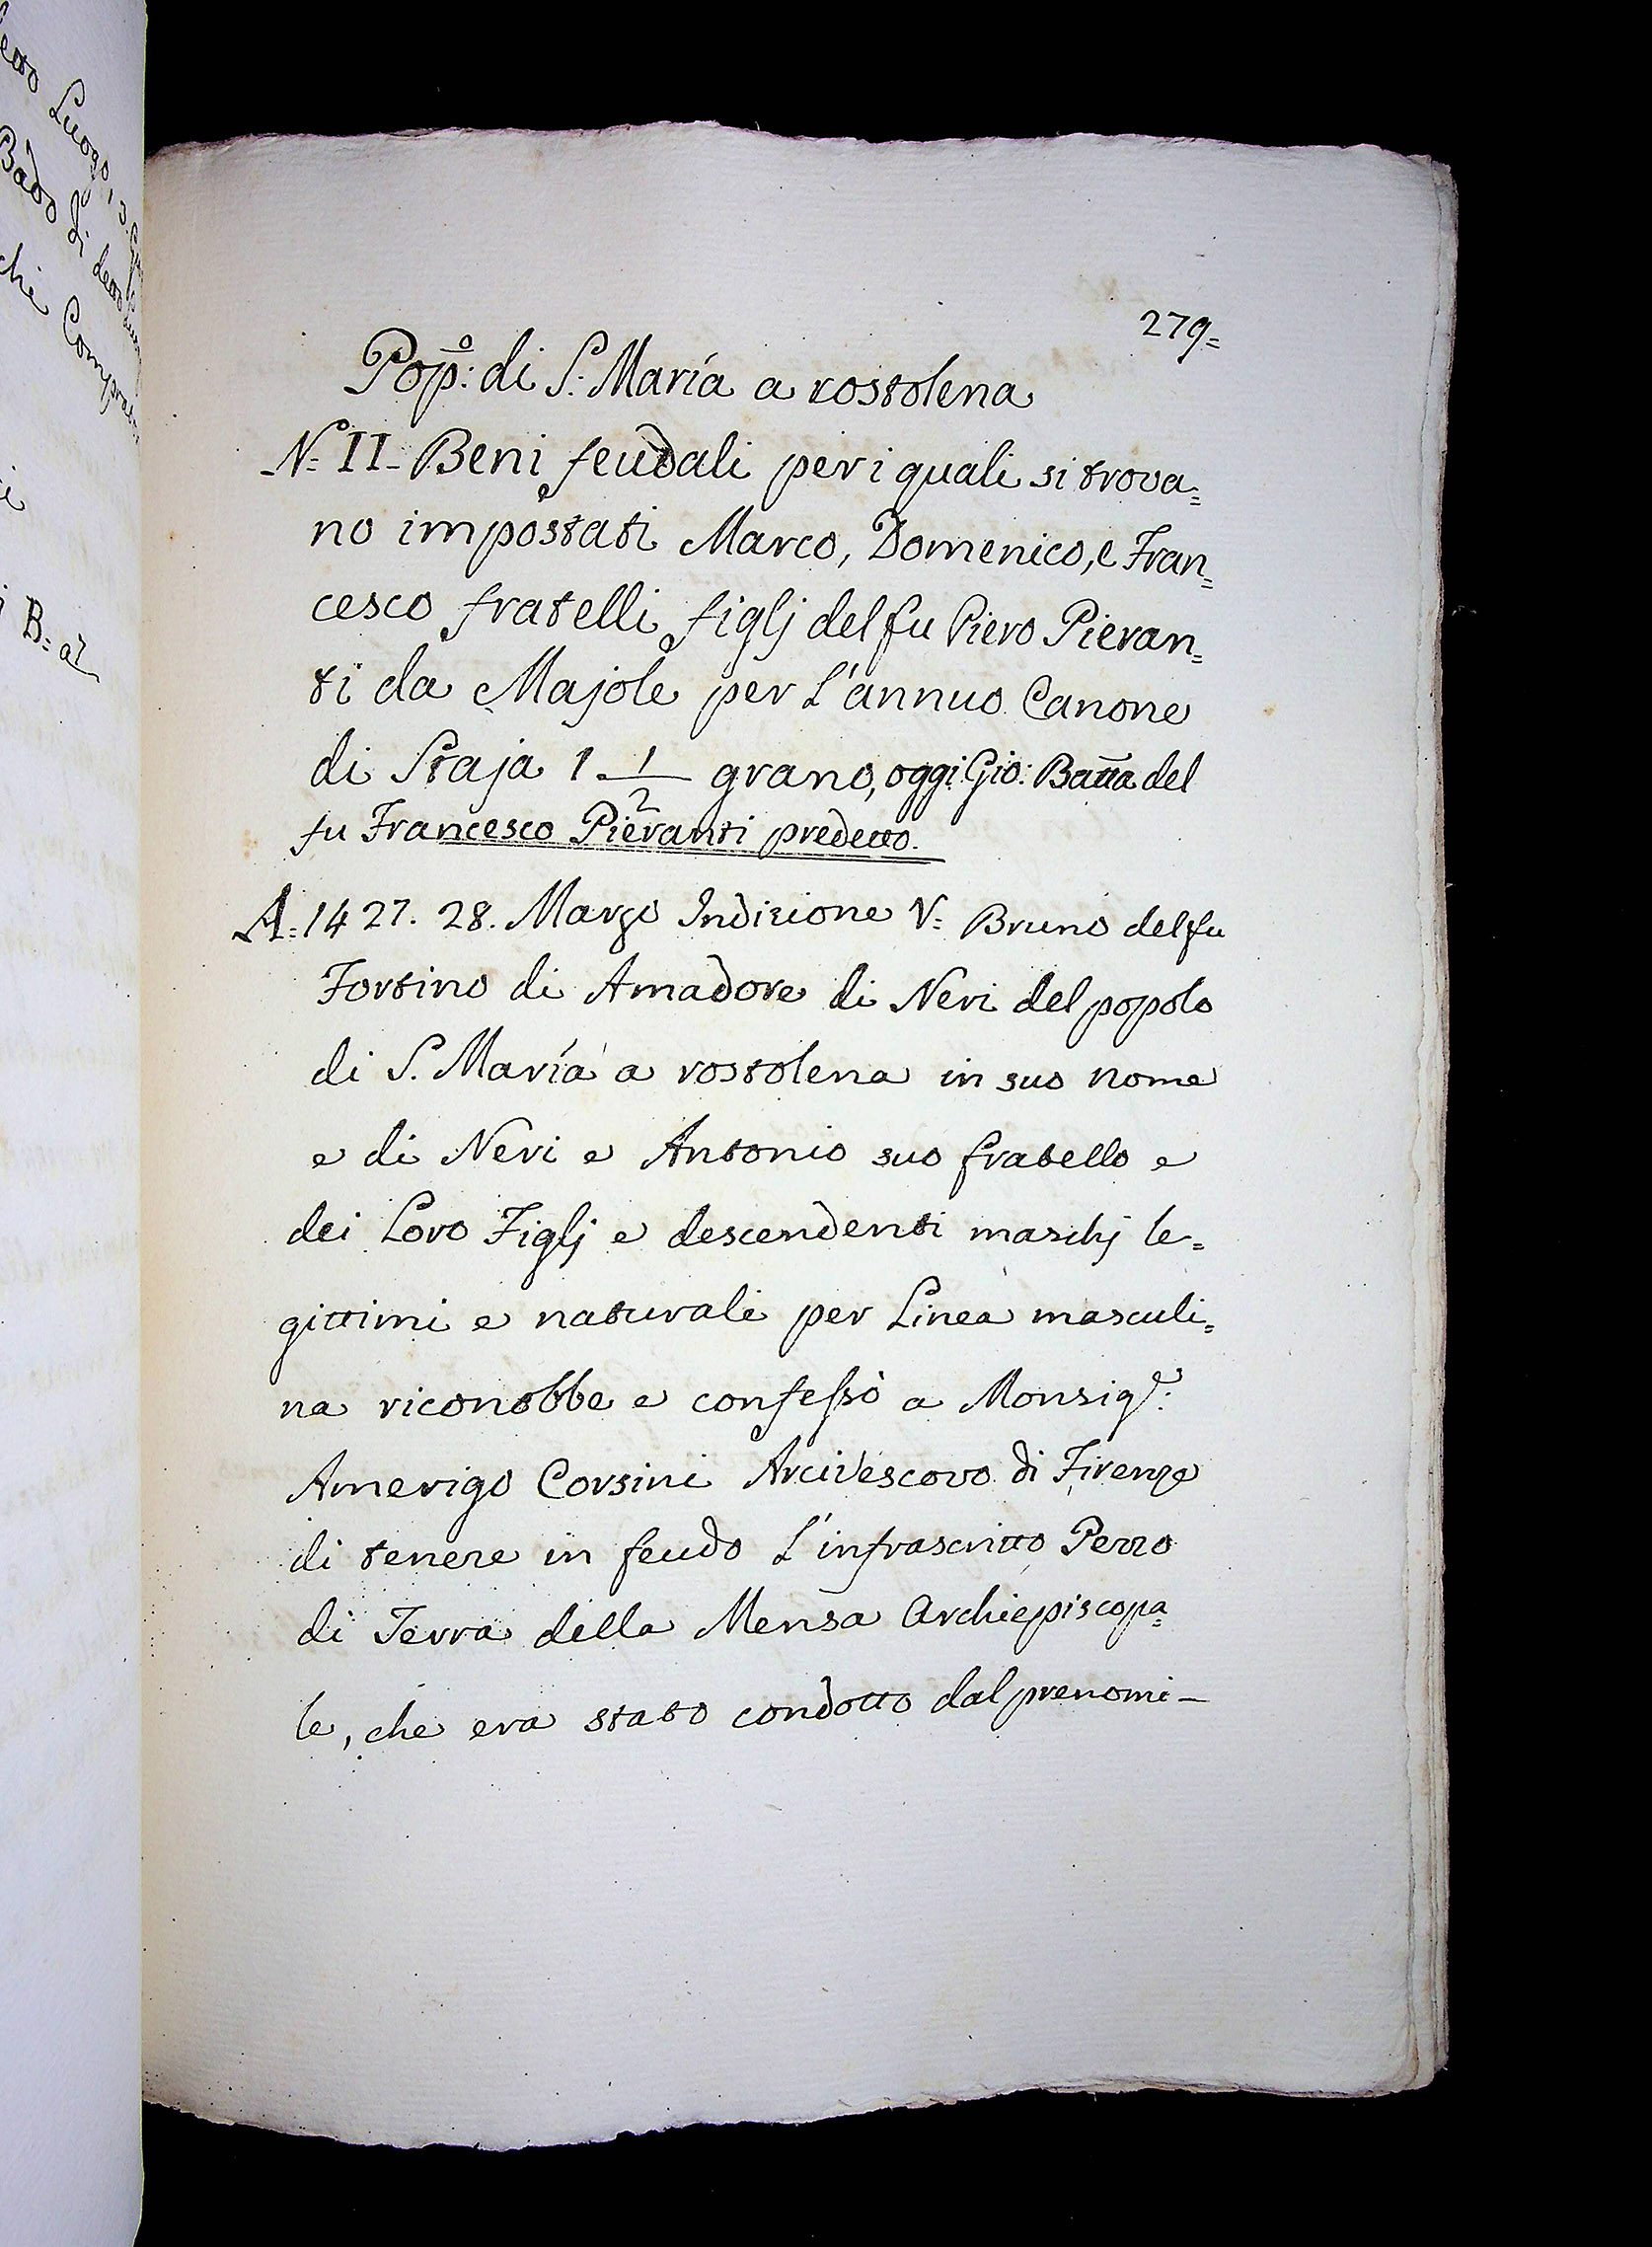 279=
Pop̊: di S: María a rostolena
N= II- Beni feudali per i quali si trova=
no impostati Marco, Domenico, e Fran=
cesco fratelli figlj del fu Piero Pieran=
ti da Majole per L'annuo Canone
di Staja 1 1/2 grano, oggi Gio: Batta del
fu Francesco Pieranti predetto.
A= 1427. 28. Marzo Indizione V: Bruno del fu
Fortino di Amadore di Neri del popolo
di S. María a rostolena in suo nome
e di Neri e Antonio suo fratello e
dei Loro Figlj e descendenti maschj le=
gittimi e naturali per Linea masculi=
na riconobbe e confessò a Monsigr:
Amerigo Corsini Arcivescovo di Firenze
di tenere in feudo L'infrascritto Pezzo
di Terra della Mensa Archiepiscopa=
le, che era stato condotto dal prenomi-
Luogo
di detto
che
B= a